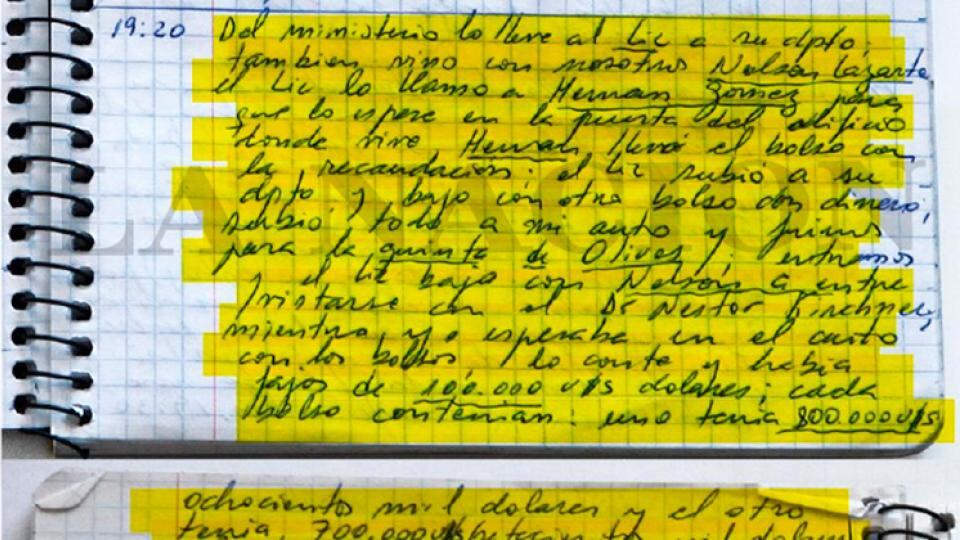 19:20 Del mimisterio lo lleve al Lic a su dpto,
tambien vino con nosotros Nelson Lazarte
el Lic lo llamo a Hernan Gomez para
que lo espere en la puerta del edificio
donde vive Hernan llevó el bolso con
la recaudación. el Lic subió a su
dpto y bajo con otro bolso con dinero,
subió todo a mi auto y fuimos
para la quinta de Olivos; entramos
y el Lic bajo con Nelson a entre
vistarse con el Dr Nestor Kirchner,
mientras yo esperaba en el auto
con los bolsos, lo conte y habia
fajos de 100.000 u/s dolares; cada
bolso contenian: uno tenia 800.000 u/s
ochocientos mil dolares y el otro
tenia, 700.000 u/s setecientos mil dolares
LA NACION